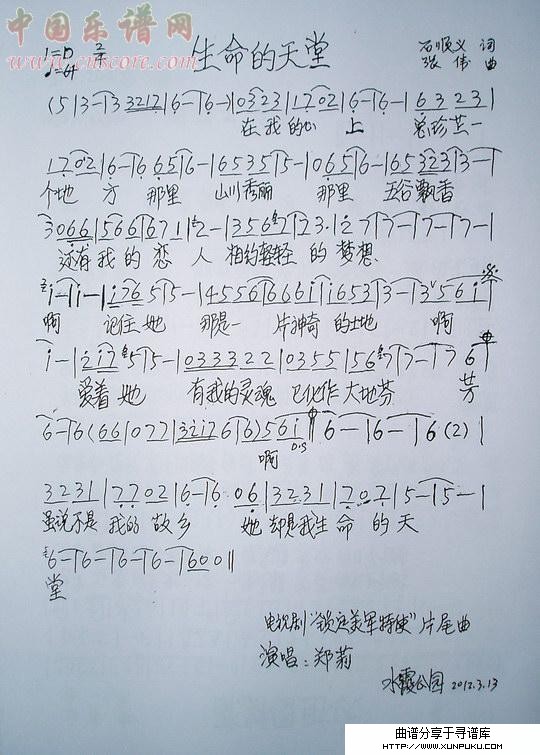 中国乐谱网
www.cnscore.com
1=D 2/4
♩=64
生命的天堂
石顺义 词
张伟 曲
(5|3-|3 3 3212|6-|6-)|0323|1702|6-|6-|63 23|
在我的心上 最珍贵一
1702|6-|6 65|6-|6535|5-|065|6-|65323|3-|
个地方 那里 山川秀丽 那里 五谷飘香
3066|566|671|2-|3567|723.|i27|7-|7-|7-|
还有我的恋人 相约轻轻的梦想
i-|i-|i765|5-|4556|666i|i653|3-|356i|
啊 记住她 那是一片神奇的土地 啊
i-|2i75|5-|033322|0355|567|7-|76|
爱着她 有我的灵魂 已化作大地芬芳
6-|6(66|077|32i2|66)56i|6-|6-|6(2)|
啊 D.S
3231|7702|6-|6 06|3231|7 02|5-|5-|
虽说不是我的故乡 她却是我生命的天
6-|6-|6-|6-|600‖
堂
电视剧"锁定美军特使"片尾曲
演唱：郑莉
水霞公园 2012.3.13
曲谱分享于寻谱库
www.xunpuku.com